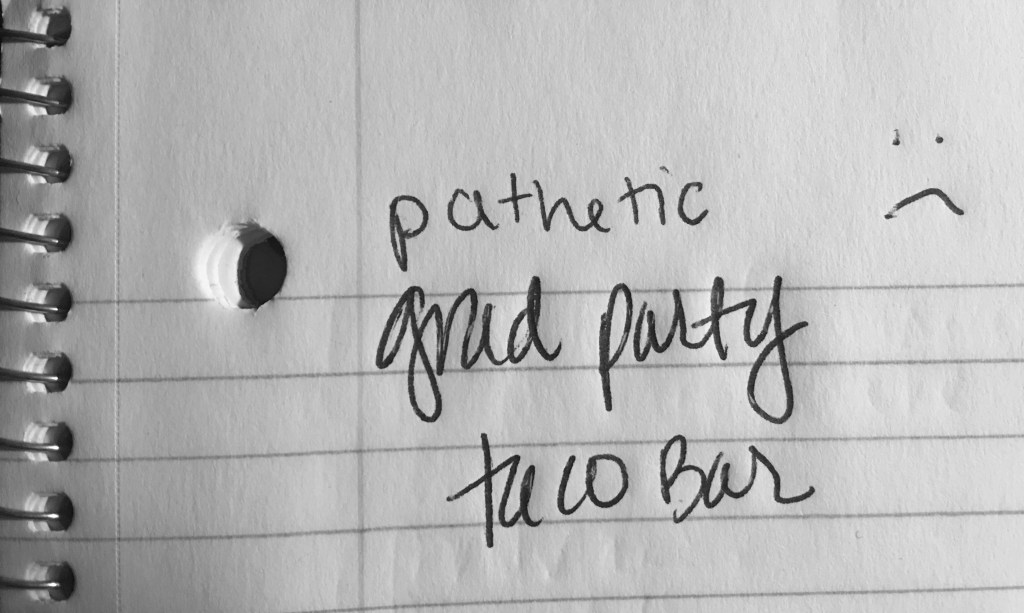 pathetic
grad party
taco Bar